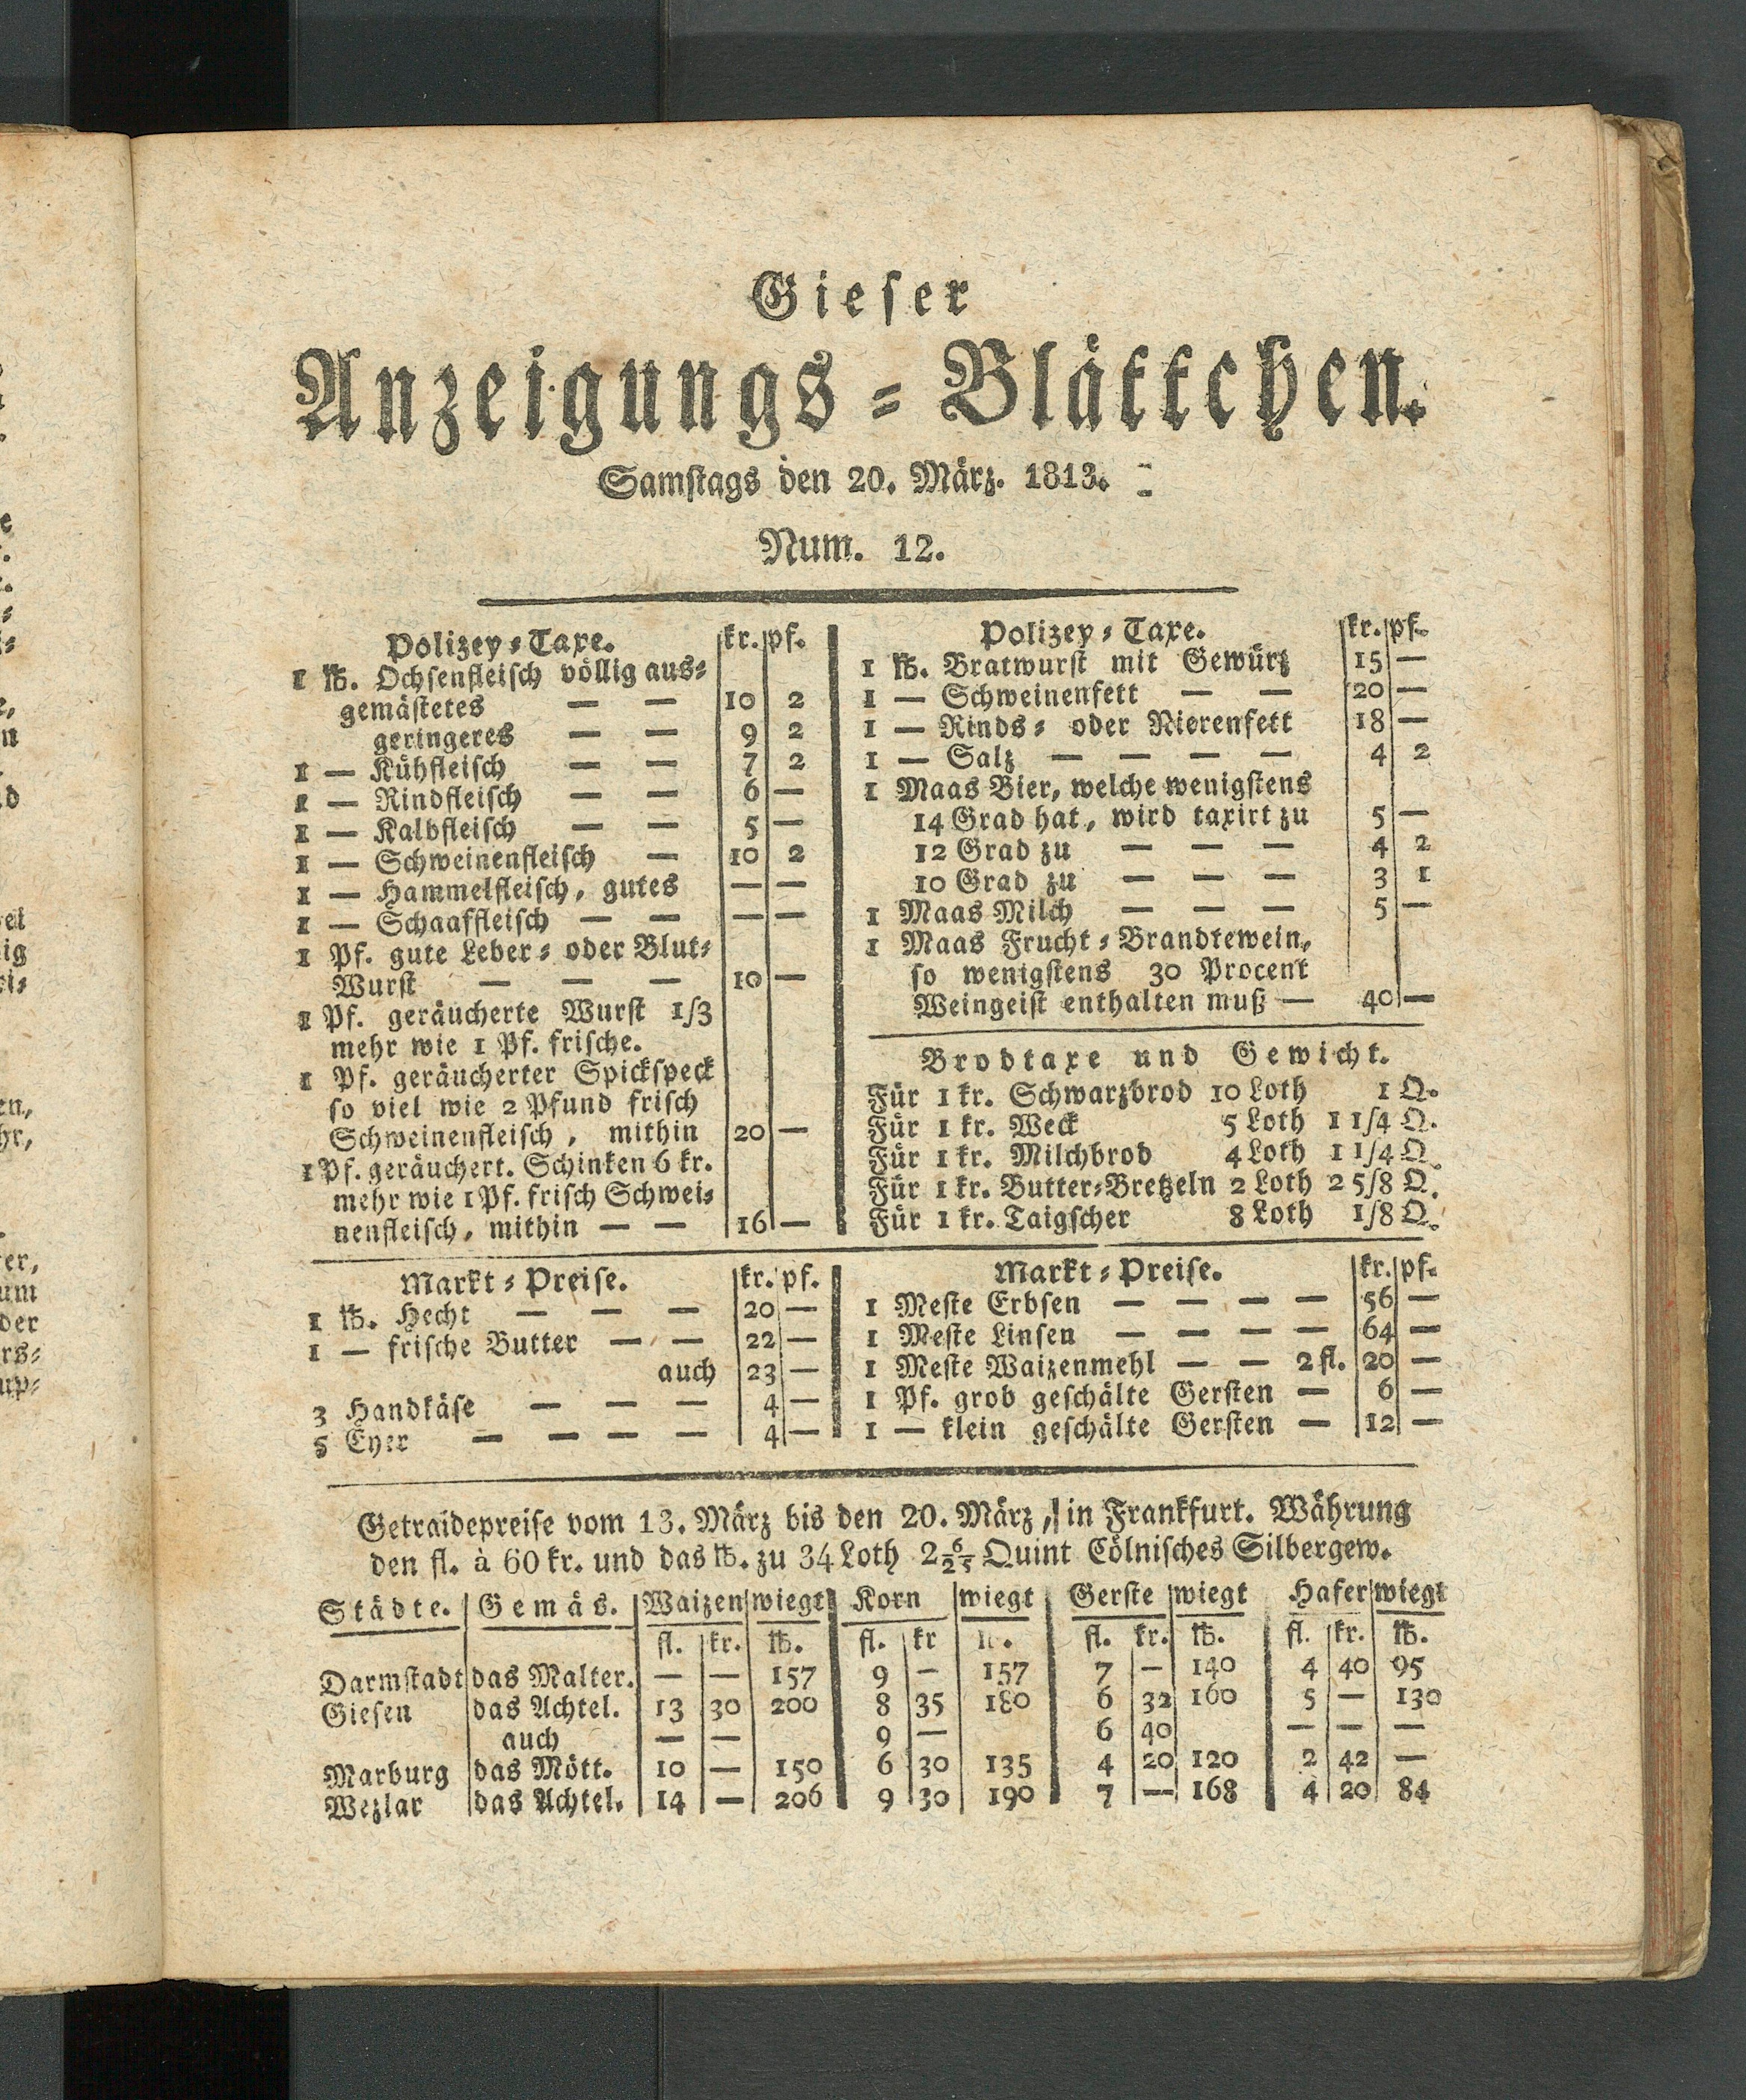 Gieser
Anzeigungs-Blättchen.
Samstags den 20. März. 1813.
Num. 12.
Polizey-Taxe. kr. pf.
1 ℔. Ochsenfleisch völlig aus-
gemästetes — — 10 2
geringeres — — 9 2
1 — Kühfleisch — — 7 2
1 — Rindfleisch — — 6 —
1 — Kalbfleisch — — 5 —
1 — Schweinenfleisch — 10 2
1 — Hammelfleisch, gutes — —
1 — Schaaffleisch — — — —
1 Pf. gute Leber- oder Blut-
Wurst — — — 10 —
1 Pf. geräucherte Wurst 1/3
mehr wie 1 Pf. frische.
1 Pf. geräucherter Spickspeck
so viel wie 2 Pfund frisch
Schweinenfleisch, mithin 20 —
1 Pf. geräuchert. Schinken 6 kr.
mehr wie 1 Pf. frisch Schwei-
nenfleisch, mithin — — 16 —
Polizey-Taxe. kr. pf.
1 ℔. Bratwurst mit Gewürtz 15 —
1 — Schweinenfett — — 20 —
1 — Rinds- oder Nierenfett 18 —
1 — Salz — — — — 4 2
1 Maas Bier, welche wenigstens
14 Grad hat, wird taxirt zu 5 —
12 Grad zu — — — 4 2
10 Grad zu — — — 3 1
1 Maas Milch — — — 5 —
1 Maas Frucht-Brandtewein,
so wenigstens 30 Procent
Weingeist enthalten muß — 40 —
Brodtaxe und Gewicht.
Für 1 kr. Schwarzbrod 10 Loth 1 Q.
Für 1 kr. Weck 5 Loth 1 1/4 Q.
Für 1 kr. Milchbrod 4 Loth 1 1/4 Q.
Für 1 kr. Butter-Bretzeln 2 Loth 2 5/8 Q.
Für 1 kr. Taigscher 8 Loth 1/8 Q.
Markt-Preise. kr. pf.
1 ℔. Hecht — — — 20 —
1 — frische Butter — — 22 —
auch 23 —
3 Handkäse — — — 4 —
5 Eyer — — — — 4 —
Markt-Preise. kr. pf.
1 Meste Erbsen — — — — 56 —
1 Meste Linsen — — — — 64 —
1 Meste Waizenmehl — — 2 fl. 20 —
1 Pf. grob geschälte Gersten — 6 —
1 — klein geschälte Gersten — 12 —
Getraidepreise vom 13. März bis den 20. März, in Frankfurt. Währung
den fl. à 60 kr. und das ℔. zu 34 Loth 2 6/25 Quint Cölnisches Silbergew.
Städte. Gemäs. Waizen wiegt Korn wiegt Gerste wiegt Hafer wiegt
fl. kr. ℔. fl. kr ℔. fl. kr. ℔. fl. kr. ℔.
Darmstadt das Malter. — — 157 9 — 157 7 — 140 4 40 95
Giesen das Achtel. 13 30 200 8 35 180 6 32 160 5 — 130
auch — — 9 — 6 40 — — —
Marburg das Mött. 10 — 150 6 30 135 4 20 120 2 42 —
Wezlar das Achtel. 14 — 206 9 30 190 7 — 168 4 20 84